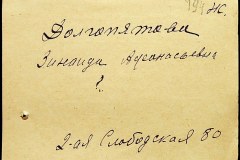 Долгопятова
Зинаида Афанасьевич
?
2-ая Слободская 80